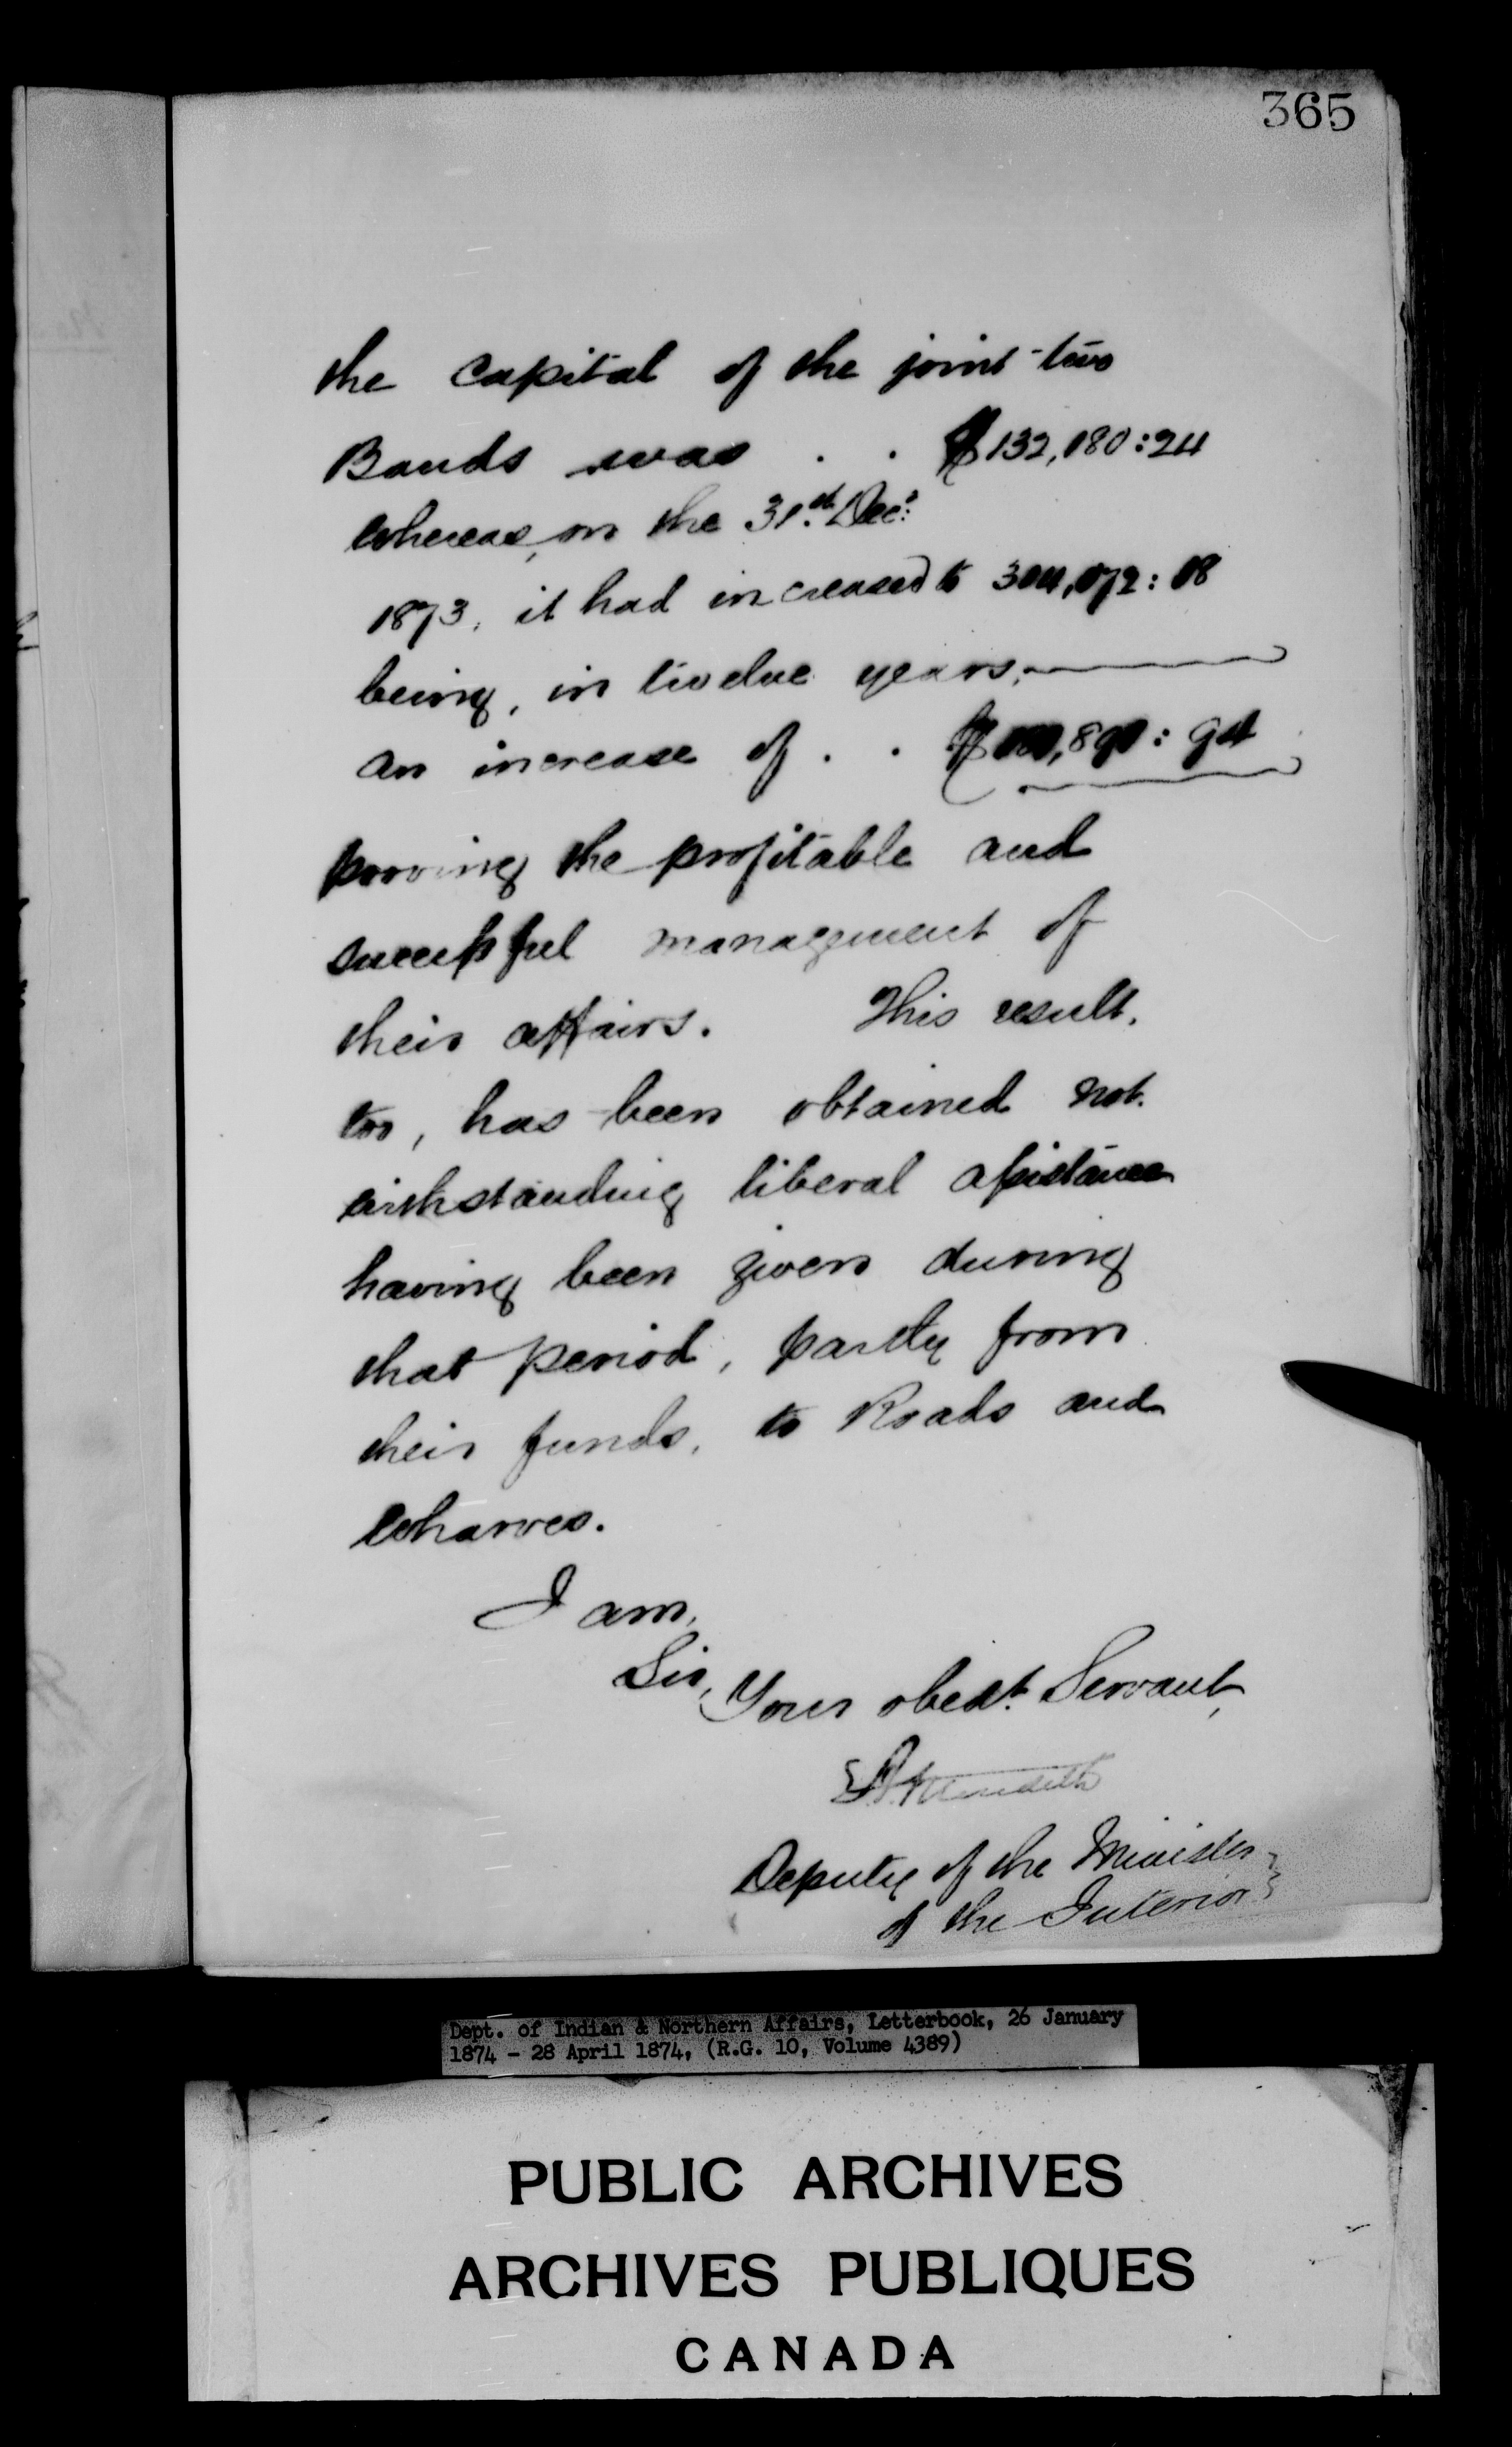 365
the Capital of the joint two
Bands was . . $132,180:24
Whereas, on the 31st. Dec:
1873, it had increased to 304,072:18
being, in twelve years,
an increase of . . $171,891:94
proving the profitable and
successful management of
their affairs. This result,
too, has been obtained not-
withstanding liberal assistance
having been given during
that period, partly from
their funds, to Roads and
Wharves.
I am,
Sir,
Your obedt. Servant,
EA Meredith
Deputy of the Minister
of the Interior
Dept. of Indian & Northern Affairs, Letterbook, 26 January
1874 - 28 April 1874, (R.G. 10, Volume 4389)
PUBLIC ARCHIVES
ARCHIVES PUBLIQUES
CANADA